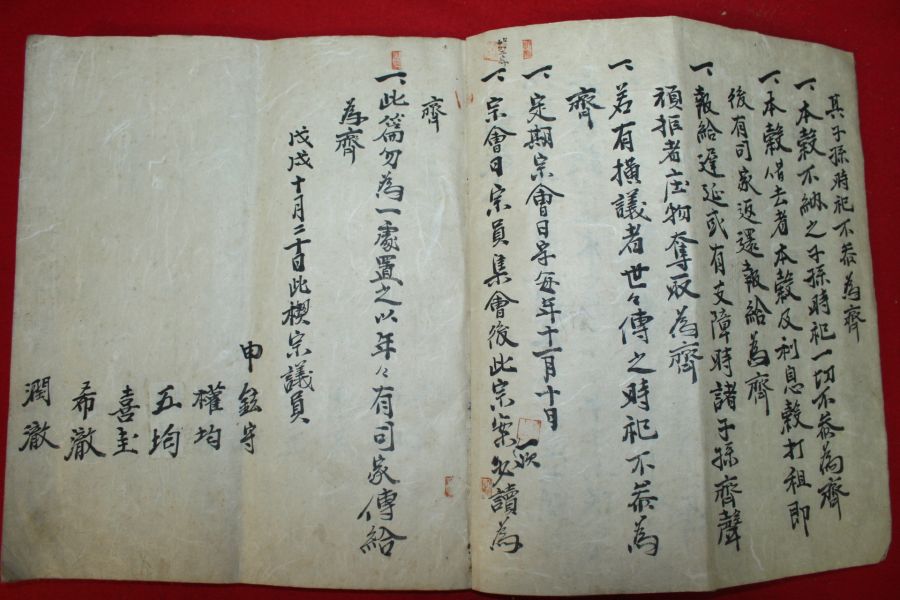 其子孫時祀不恭為齊
一、本穀不納之子孫時祀一切不恭為齊
一、本穀借去者本穀及利息穀打租即
後有司家返還報給為齊
一、報給遲延或有支障時諸子孫齊聲
頑拒者庄物奪取為齊
一、若有橫議者世々傳之時祀不恭為
齊
一、定期宗會日字每年十一月十日
一、宗會日宗員集會後此宗案必讀為
齊
一、此篇勿為一處置之以年々有司家傳給
為齊
戊戌十月二十日此楔宗議員
申鉉守
權均
五均
喜圭
希澈
潤澈